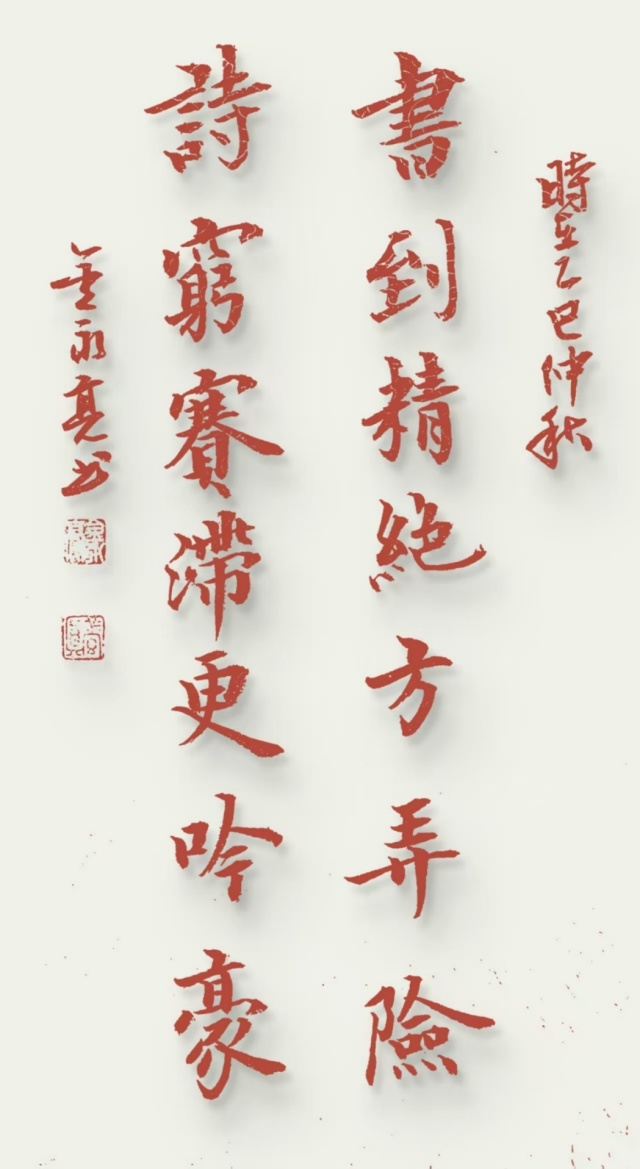 時在乙巳仲秋
書到精絕方弄險
詩窮賽滯更吟豪
董永亮书